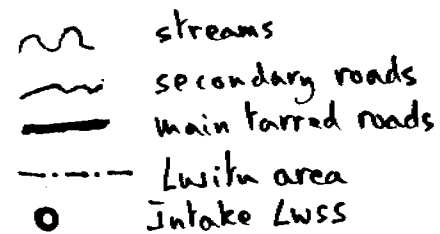 streams
secondary roads
main tarred roads
Lwitu area
Intake LWSS